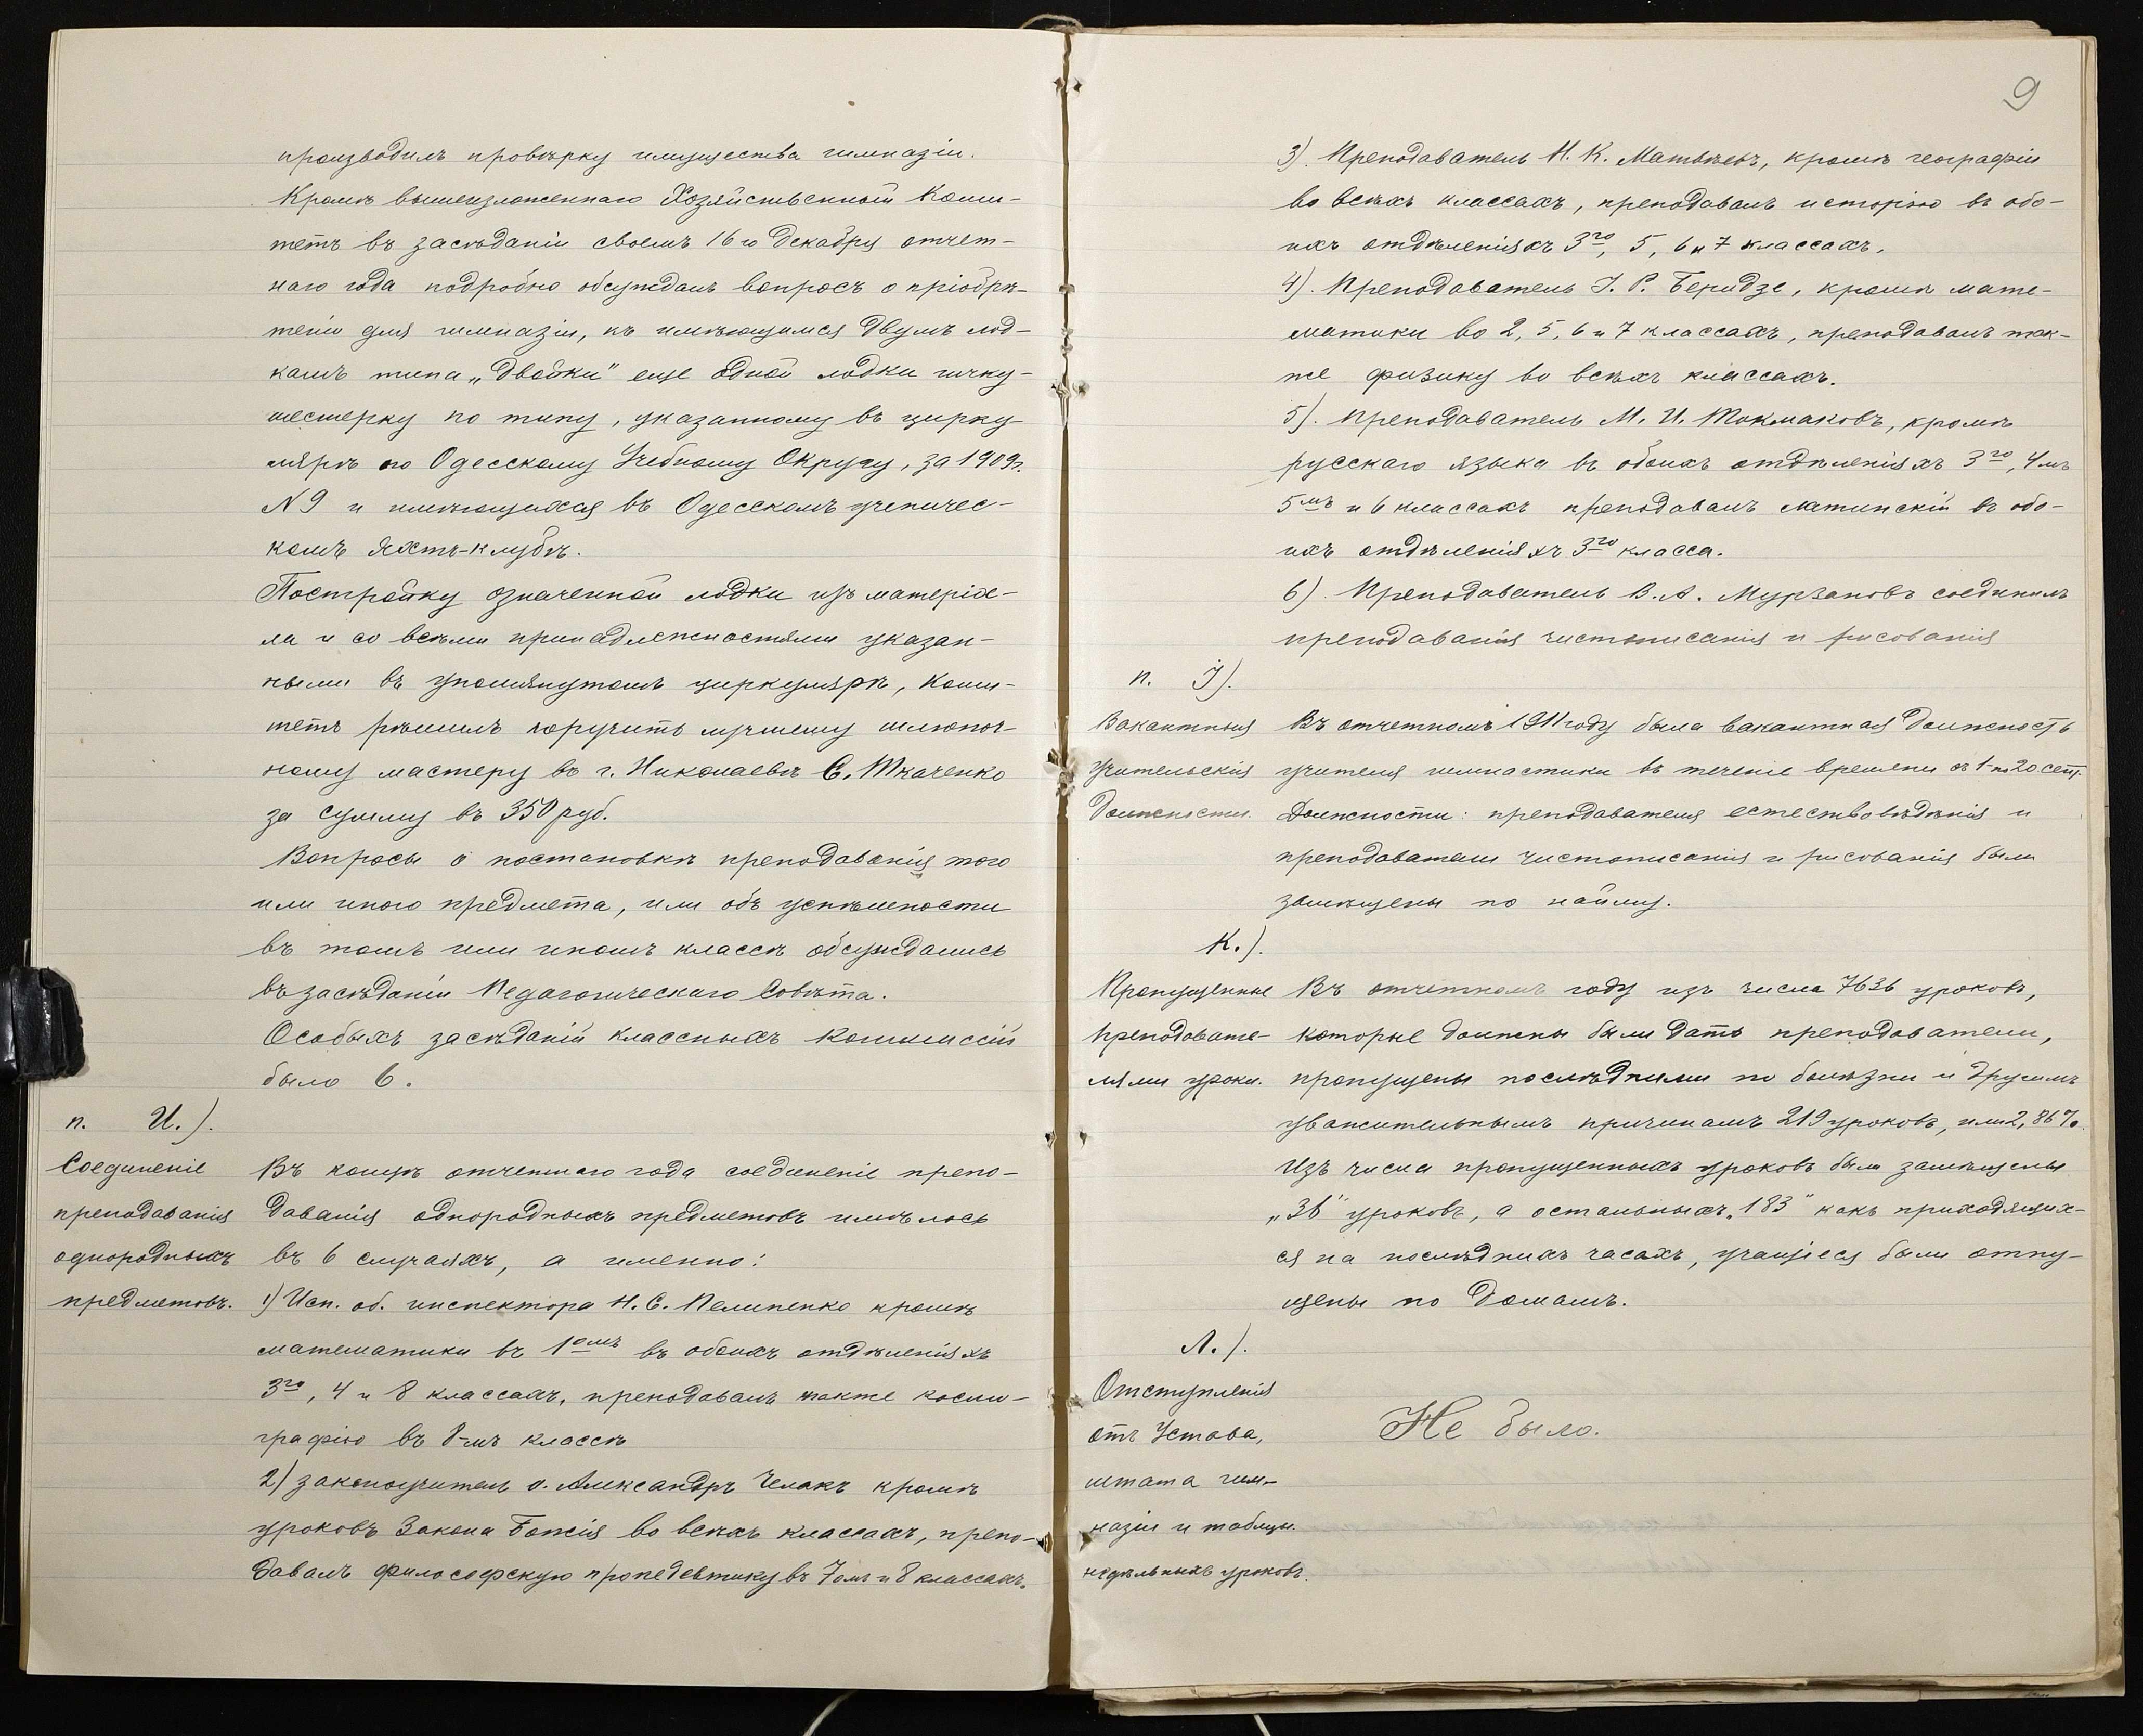 производилъ провѣрку имущества гимназіи.
Кромѣ вышеизложеннаго Хозяйственный Коми-
тетъ въ засѣданіи своемъ 16го декабря отчет-
наго года подробно обсуждалъ вопросъ о пріобрѣ-
теніи для гимназіи, къ имѣющимся двумъ лод-
камъ типа „двойки" еще одной лодки гичку-
шестерку по типу, указанному въ цирку-
лярѣ по Одесскому Учебному Округу, за 1909г.
N 9 и имѣющихся въ Одесскомъ ученичес-
комъ Яхтъ-клубѣ.
Постройку означенной лодки изъ матеріа-
ла и со всѣми принадлежностями указан-
ными въ упомянутомъ циркулярѣ, Коми-
тетъ рѣшилъ поручить лучшему шлюпоч-
ному мастеру въ г. Николаевѣ С. Ткаченко
за сумму въ 350 руб.
Вопросы о постановкѣ преподаванія того
или иного предмета, или объ успѣшности
въ томъ или иномъ классѣ обсуждались
въ засѣданіи Педагогическаго Совѣта.
Особыхъ засѣданій классныхъ комиссій
было 6.
п. И.).
Соединеніе
преподаванія
однородныхъ
предметовъ.
Въ концѣ отчетнаго года соединеніе препо-
даванія однородныхъ предметовъ имѣлось
въ 6 случаяхъ, а именно:
1) Исп. об. инспектора Н. С. Пелипенко кромѣ
математики въ 1омъ въ обоихъ отдѣленіяхъ
3го, 4 и 8 классахъ, преподавалъ также космо-
графію въ 8-мъ классѣ
2) законоучитель о. Александръ Челакъ кромѣ
уроковъ Закона Божія во всѣхъ классахъ, препо-
давалъ философскую пропедевтику въ 7омъ и 8 классахъ.
9
3). Преподаватель Н. К. Матвѣевъ, кромѣ географіи
во всѣхъ классахъ, преподавалъ исторію въ обо-
ихъ отдѣленіяхъ 3го, 5, 6 и 7 классахъ.
4). Преподаватель І. Р. Беридзе, кромѣ мате-
матики во 2, 5, 6 и 7 классахъ, преподавалъ так-
же физику во всѣхъ классахъ.
5). Преподаватель М. И. Токмаковъ, кромѣ
русскаго языка въ обоихъ отдѣленіяхъ 3го, 4мъ
5мъ и 6 классахъ преподавалъ латинскій въ обо-
ихъ отдѣленіяхъ 3го класса.
6). Преподаватель В. А. Мурзановъ соединилъ
преподаванія чистописанія и рисованія
п. І).
Вакантныя
учительскія
должности.
Въ отчетномъ 1911 году была вакантная должность
учителя гимнастики въ теченіе времени съ 1-по 20 сент.
Должности: преподавателя естествовѣдѣнія и
преподаватели чистописанія и рисованія были
замѣщены по найму.
К.).
Пропущенные
преподавате-
лями уроки.
Въ отчетномъ году изъ числа 7636 уроковъ,
которые должны были дать преподаватели,
пропущены послѣдними по болѣзни и другимъ
уважительнымъ причинамъ 219 уроковъ, или 2,86%.
Изъ числа пропущенныхъ уроковъ были замѣщены
„36" уроковъ, а остальныхъ „183" какъ приходящих-
ся на послѣднихъ часахъ, учащіеся были отпу-
щены по домамъ.
Л.).
Отступленія
отъ Устава,
штата гим-
назіи и таблицы
недѣльныхъ уроковъ.
Не было.